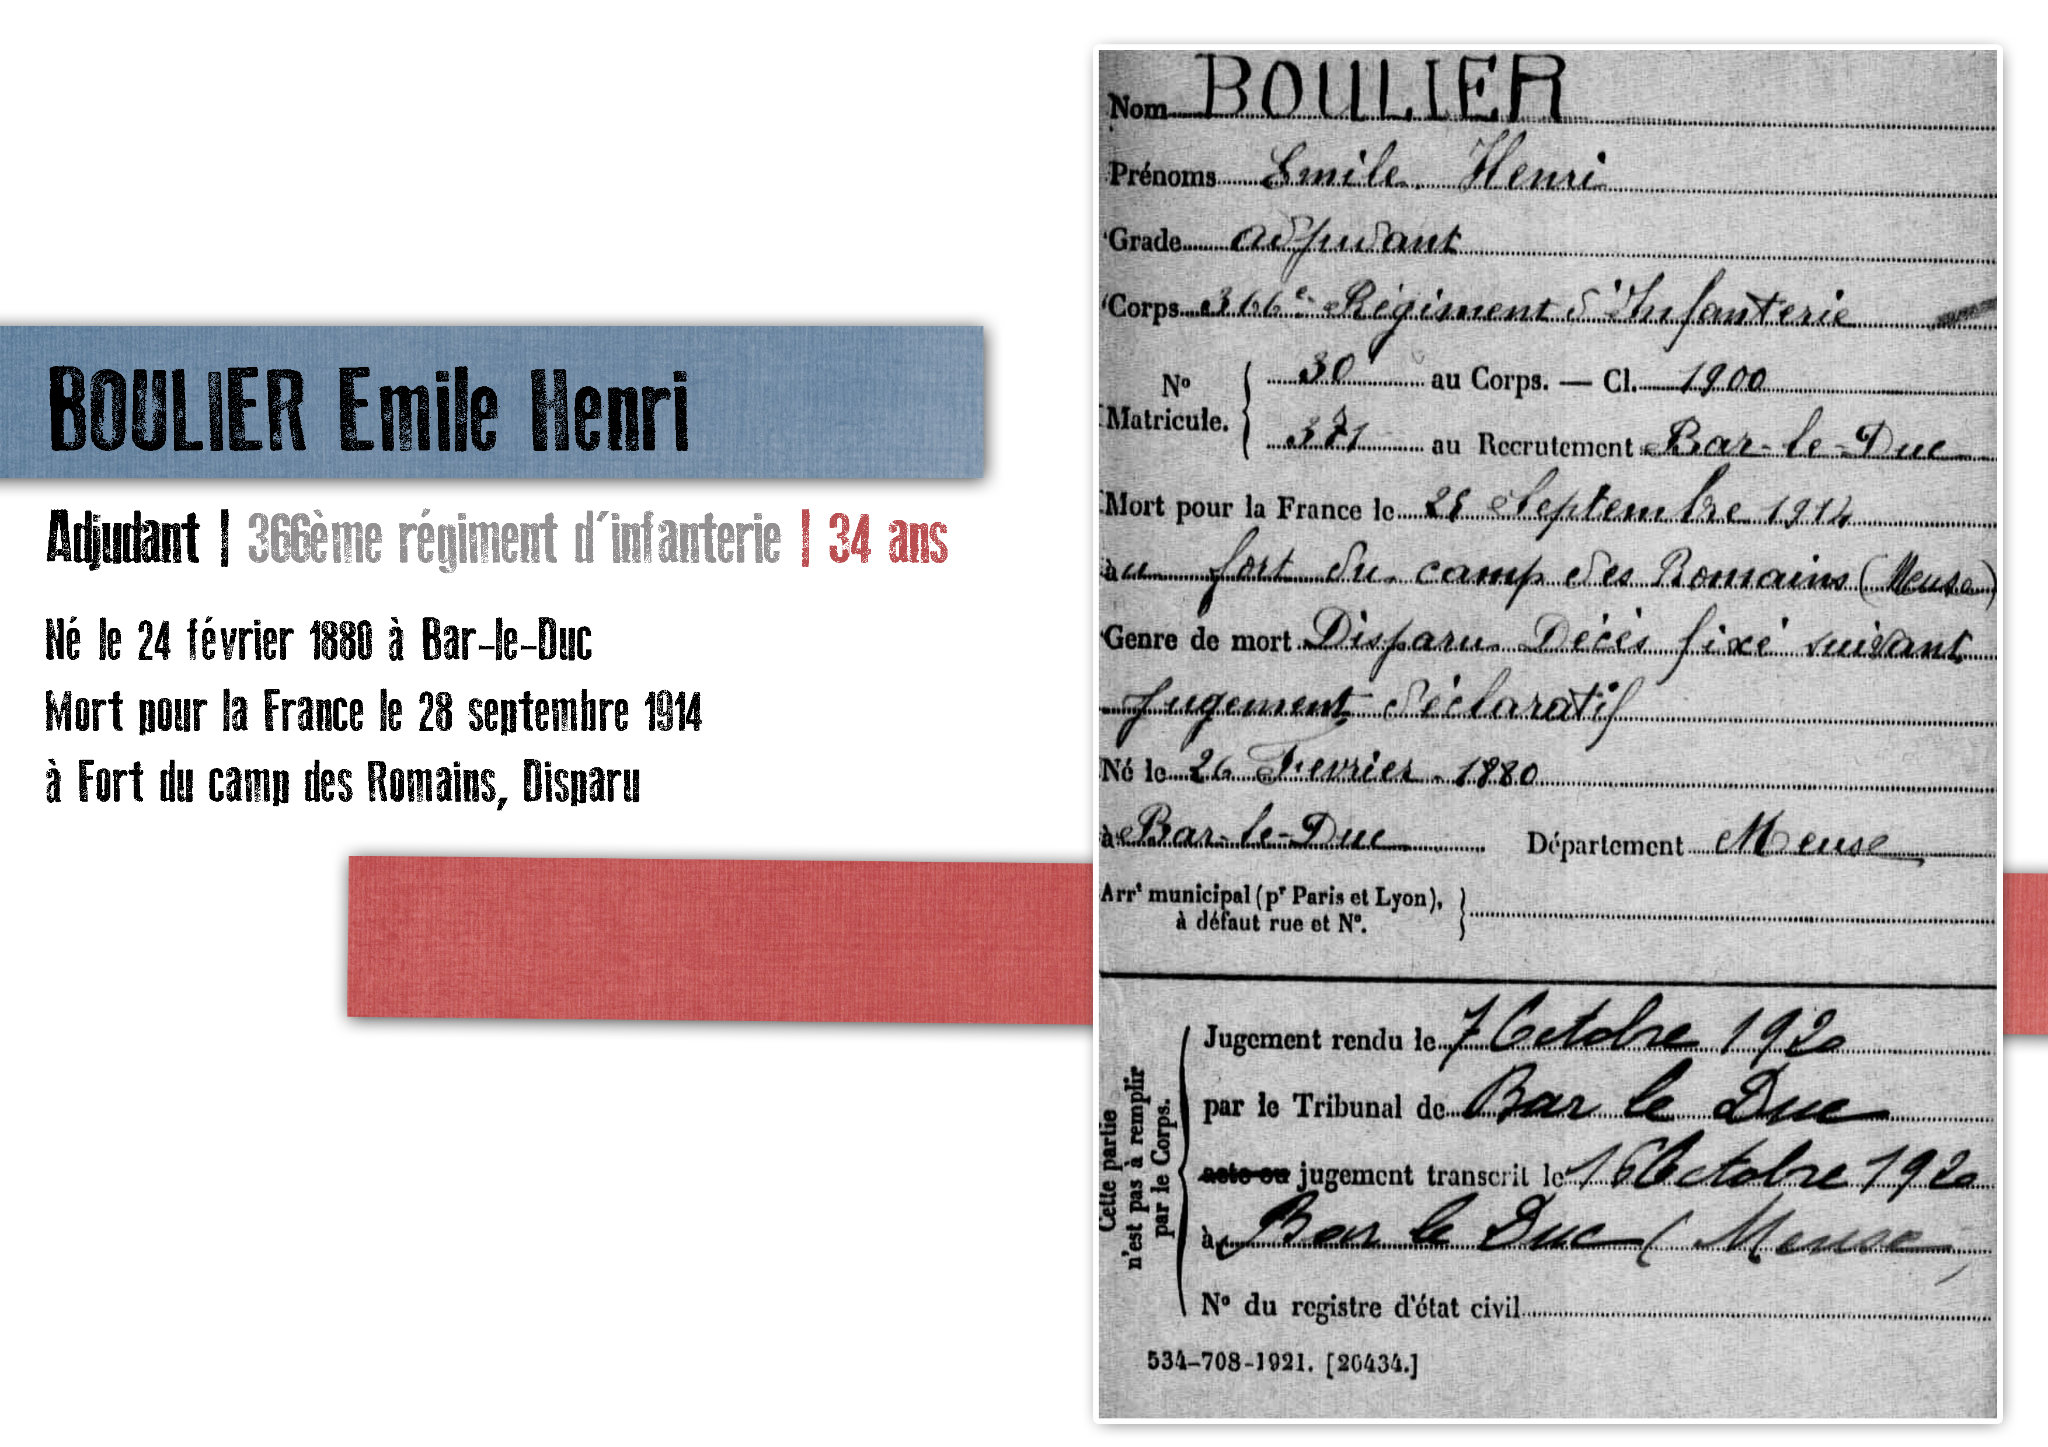 BOULIER Emile Henri
Adjudant | 366ème régiment d'infanterie | 34 ans
Né le 24 février 1880 à Bar-le-Duc
Mort pour la France le 28 septembre 1914
à Fort du camp des Romains, Disparu
Nom BOULIER
Prénoms Emile Henri
Grade adjudant
Corps 366e Régiment d'Infanterie
No Matricule. { 30 au Corps. — Cl. 1900
371 au Recrutement Bar-le-Duc
Mort pour la France le Septembre 1914
au fort du camp des Romains (Meuse)
Genre de mort Disparu Décès fixé suivant
jugement déclaratif
Né le Fevrier 1880
à Bar-le-Duc Département Meuse
Arrt municipal (pr Paris et Lyon), }
à défaut rue et No.
Cette partie
n'est pas à remplir
par le Corps.
Jugement rendu le 7 Octobre 1920
par le Tribunal de Bar le Duc
acte ou jugement transcrit le 16 Octobre 1920
à Bar le Duc (Meuse)
No du registre d'état civil
534-708-1921. [26434.]